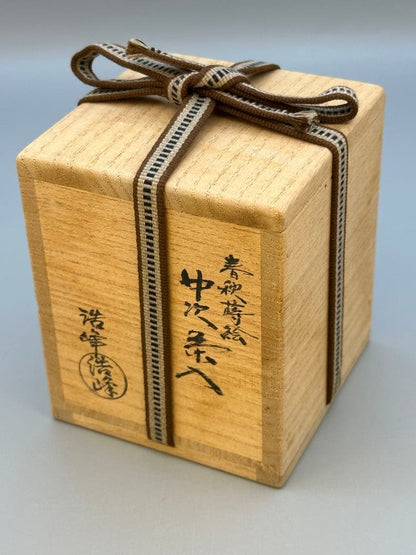 春秋蒔絵
中次茶入
浩峰
浩峰